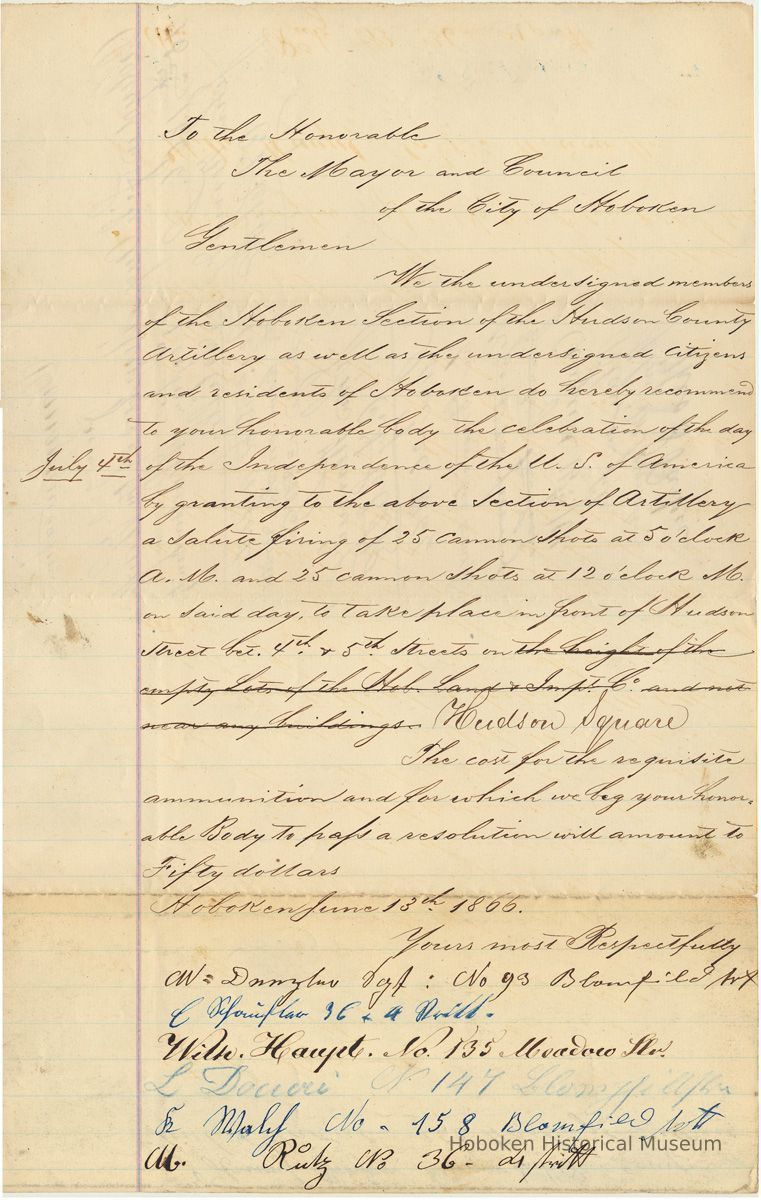 To the Honorable
The Mayor and Council
of the City of Hoboken
Gentlemen
We the undersigned members
of the Hoboken Section of the Hudson County
Artillery as well as the undersigned citizens
and residents of Hoboken do hereby recommend
to your honorable body the celebration of the day
July 4th of the Independence of the U. S. of America
by granting to the above Section of Artillery
a Salute firing of 25 cannon shots at 5 o'clock
A. M. and 25 cannon shots at 12 o'clock M.
on said day, to take place in front of Hudson
Street bet. 4th. & 5th. Streets on the height of the
empty Lots of the Hob. Land & Impt. Co. and not
near any buildings. Hudson Square
The cost for the requisite
ammunition and for which we beg your honor-
able Body to pass a resolution will amount to
Fifty dollars
Hoboken June 13th. 1866.
Yours most Respectfully
Sgt: No 93 Blomfield
36
Wilh. Haupt. No. 135 Meadow Str.
L No 147
Fr No - 158 Blomfield
M. Rutz No 36-
Hoboken Historical Museum